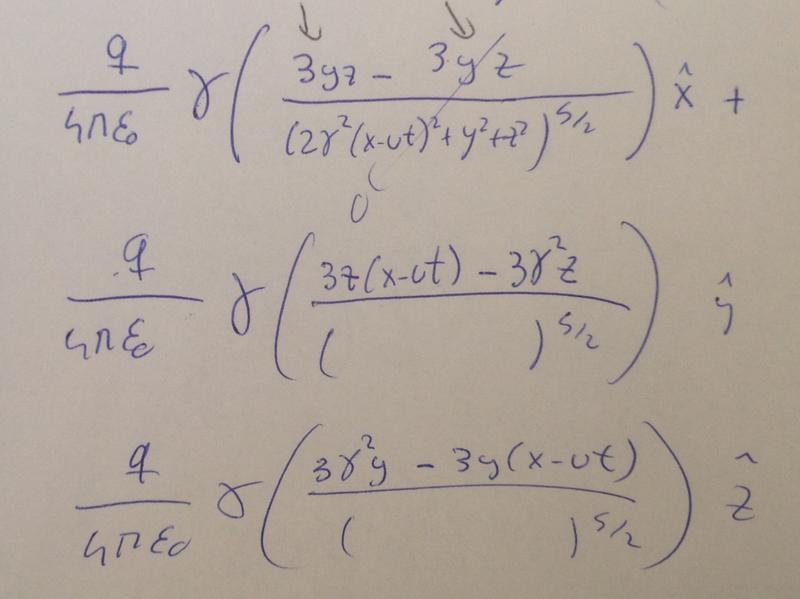 q/(4πε₀) γ ( (3yz - 3yz) / (2γ²(x-υt)²+y²+z²)^{5/2} ) x̂ +
0
q/(4πε₀) γ ( (3z(x-υt) - 3γ²z) / ( )^{5/2} ) ŷ
q/(4πε₀) γ ( (3γ²y - 3y(x-υt)) / ( )^{5/2} ) ẑ